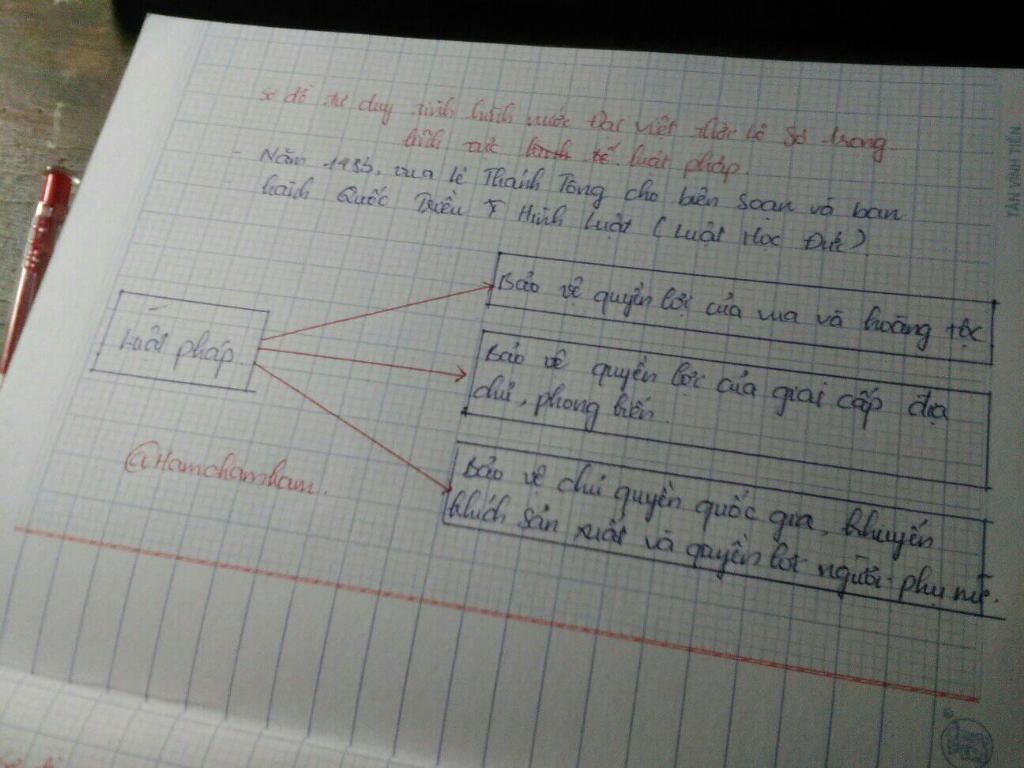 sơ đồ tư duy tình hình nước Đại Việt thời Lê Sơ trong
lĩnh vực kinh tế luật pháp.
- Năm 1483, vua Lê Thánh Tông cho biên soạn và ban
hành Quốc Triều Hình Luật (Luật Học Đức)
Bảo vệ quyền lợi của vua và hoàng tộc
Luật pháp
Bảo vệ quyền lợi của giai cấp địa
chủ, phong kiến.
Bảo vệ chủ quyền quốc gia, khuyến
khích sản xuất và quyền lợi người phụ nữ.
@Hamchamham.
TÂN VĨNH TIẾN